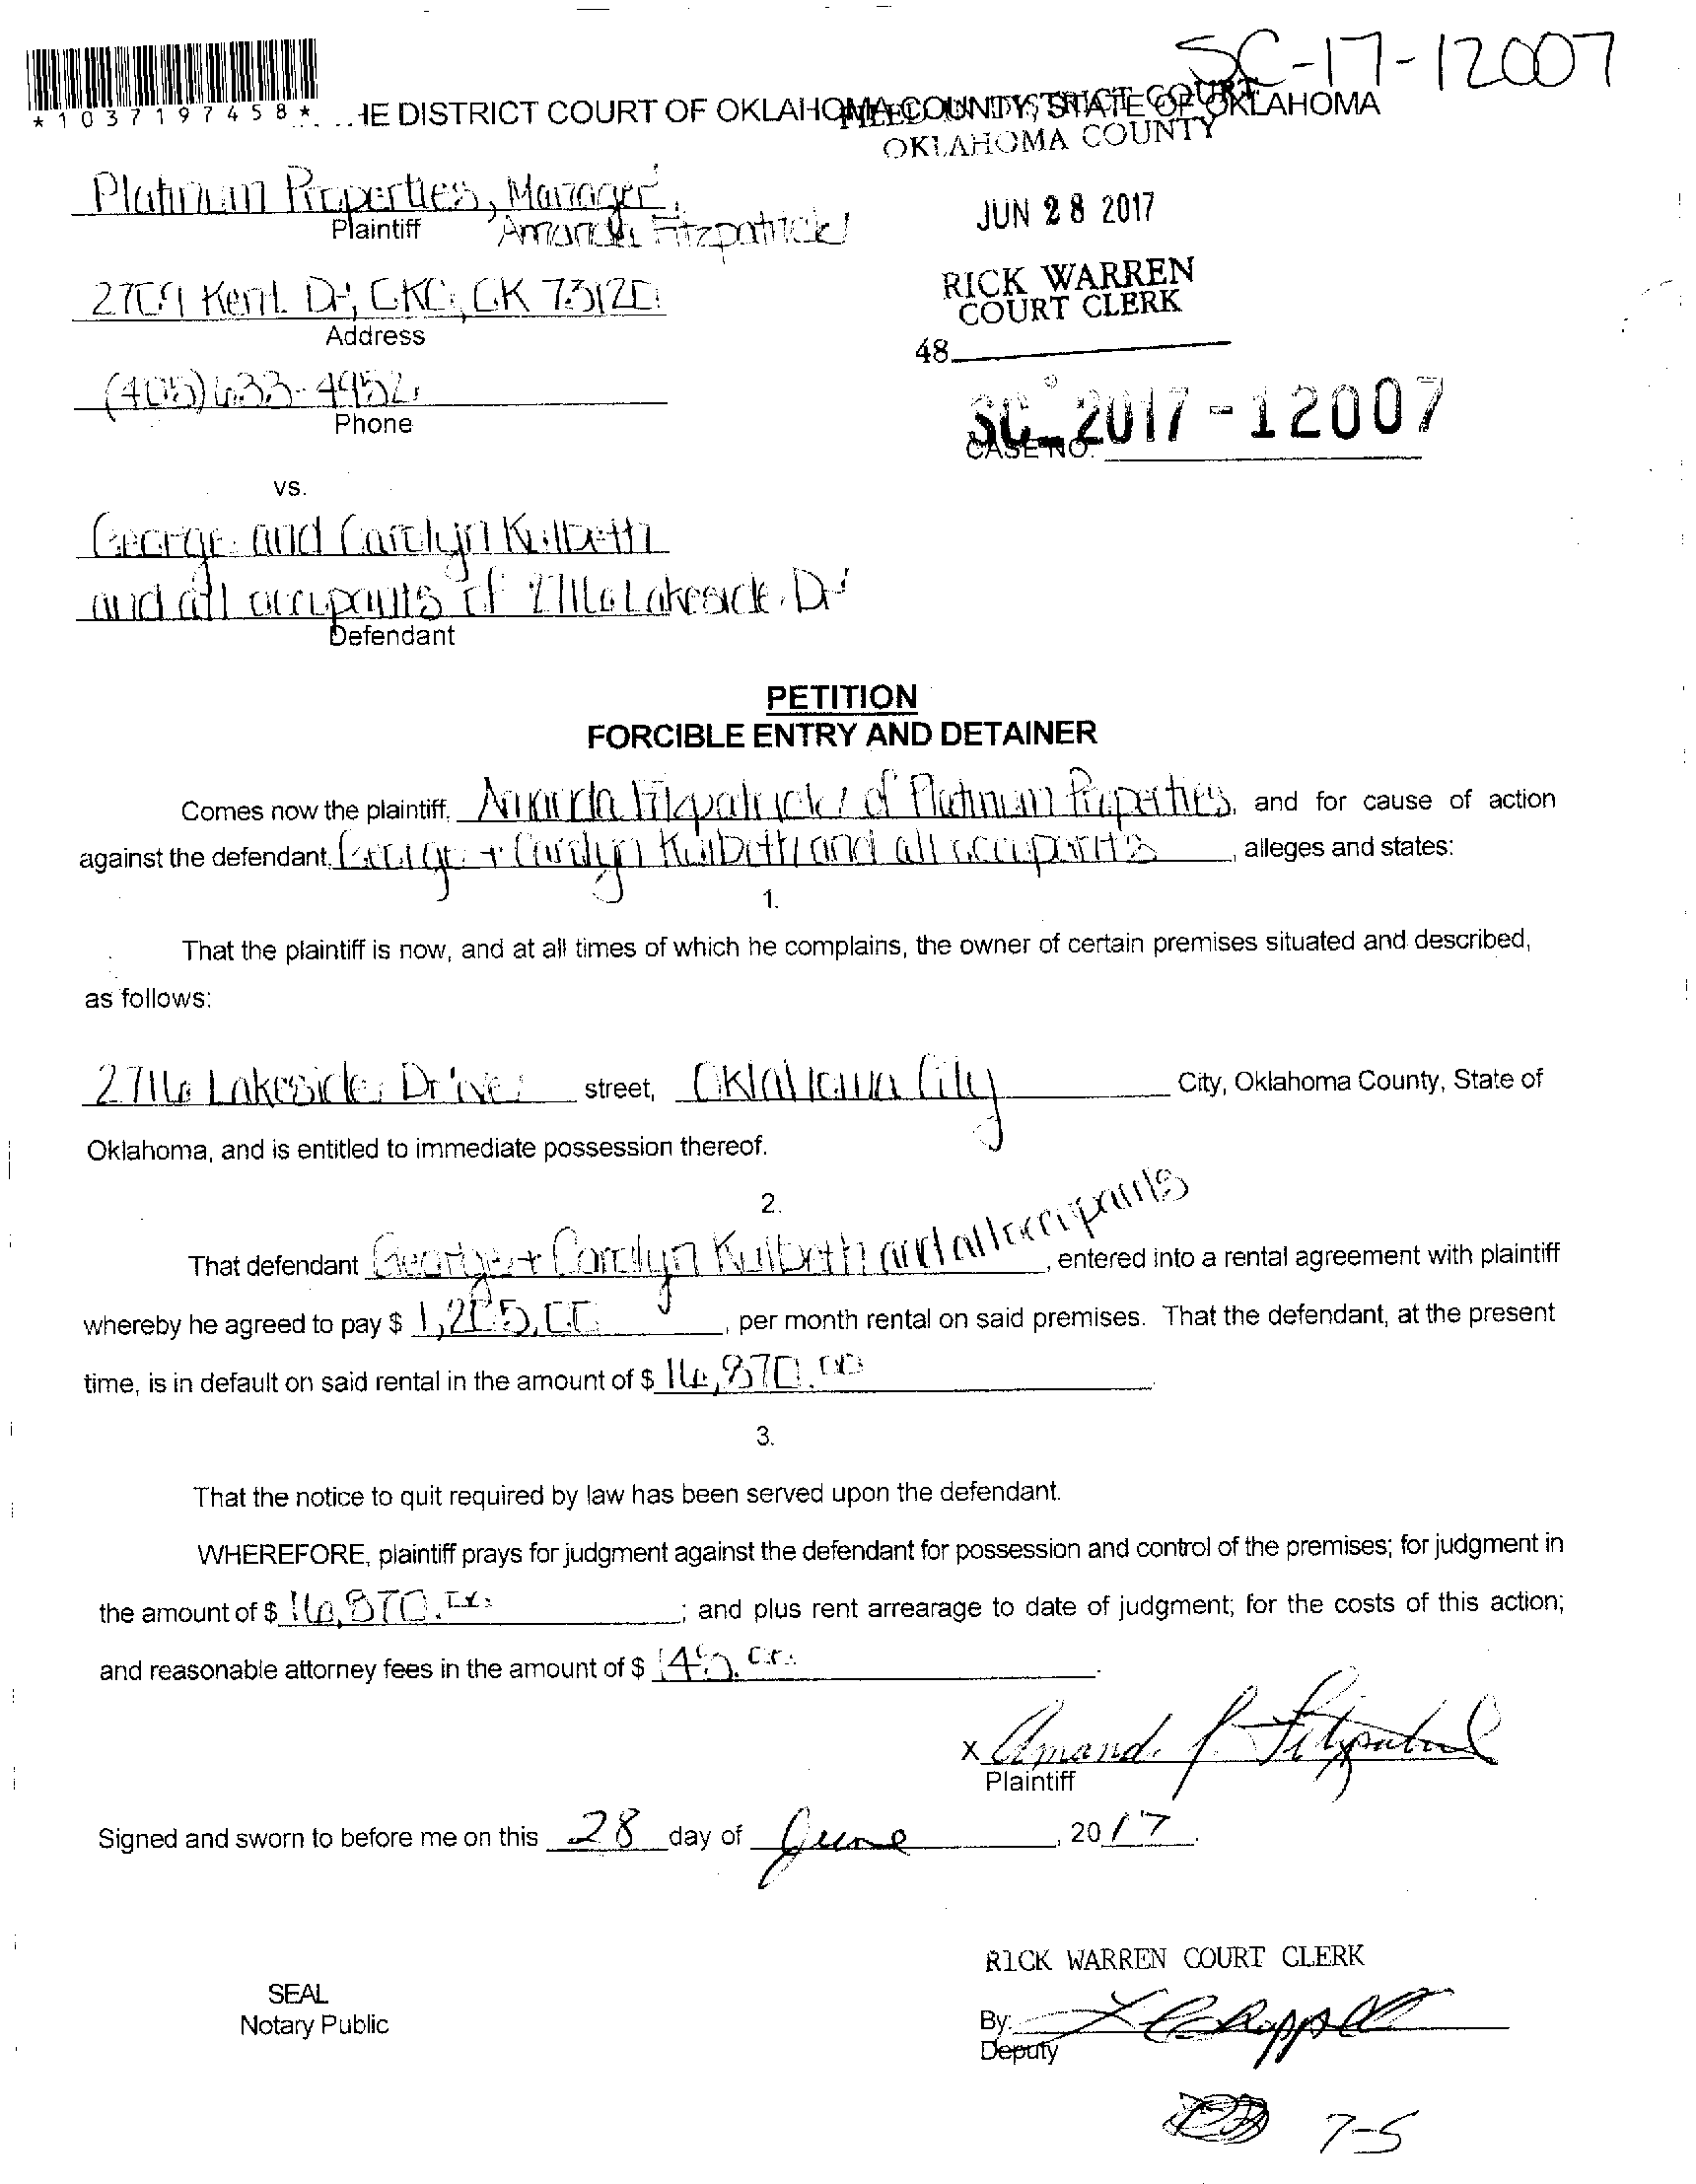 SC-17-12007
*1037197458*
HE DISTRICT COURT OF OKLAHOMA COUNTY, STATE OF OKLAHOMA
FILED IN DISTRICT COURT
OKLAHOMA COUNTY
Platinum Properties, Manager,
Plaintiff
Amanda Fitzpatrick
JUN 28 2017
2709 Kent Dr, OKC, OK 73120
Address
RICK WARREN
COURT CLERK
48
(405) 633-4952
Phone
SC-2017-12007
CASE NO.
vs.
George and Carolyn Kulbeth
and all occupants of 2716 Lakeside Dr
Defendant
PETITION
FORCIBLE ENTRY AND DETAINER
Comes now the plaintiff, Amanda Fitzpatrick of Platinum Properties, and for cause of action
against the defendant, George + Carolyn Kulbeth and all occupants, alleges and states:
1.
That the plaintiff is now, and at all times of which he complains, the owner of certain premises situated and described,
as follows:
2716 Lakeside Drive street, Oklahoma City City, Oklahoma County, State of
Oklahoma, and is entitled to immediate possession thereof.
2.
That defendant George + Carolyn Kulbeth and all occupants, entered into a rental agreement with plaintiff
whereby he agreed to pay $ 1,205.00, per month rental on said premises. That the defendant, at the present
time, is in default on said rental in the amount of $ 16,870.00.
3.
That the notice to quit required by law has been served upon the defendant.
WHEREFORE, plaintiff prays for judgment against the defendant for possession and control of the premises; for judgment in
the amount of $ 16,870.00; and plus rent arrearage to date of judgment; for the costs of this action;
and reasonable attorney fees in the amount of $ 145.00.
x Amanda Fitzpatrick
Plaintiff
Signed and sworn to before me on this 28 day of June, 2017.
RICK WARREN COURT CLERK
SEAL
Notary Public
By:
Deputy
7-5